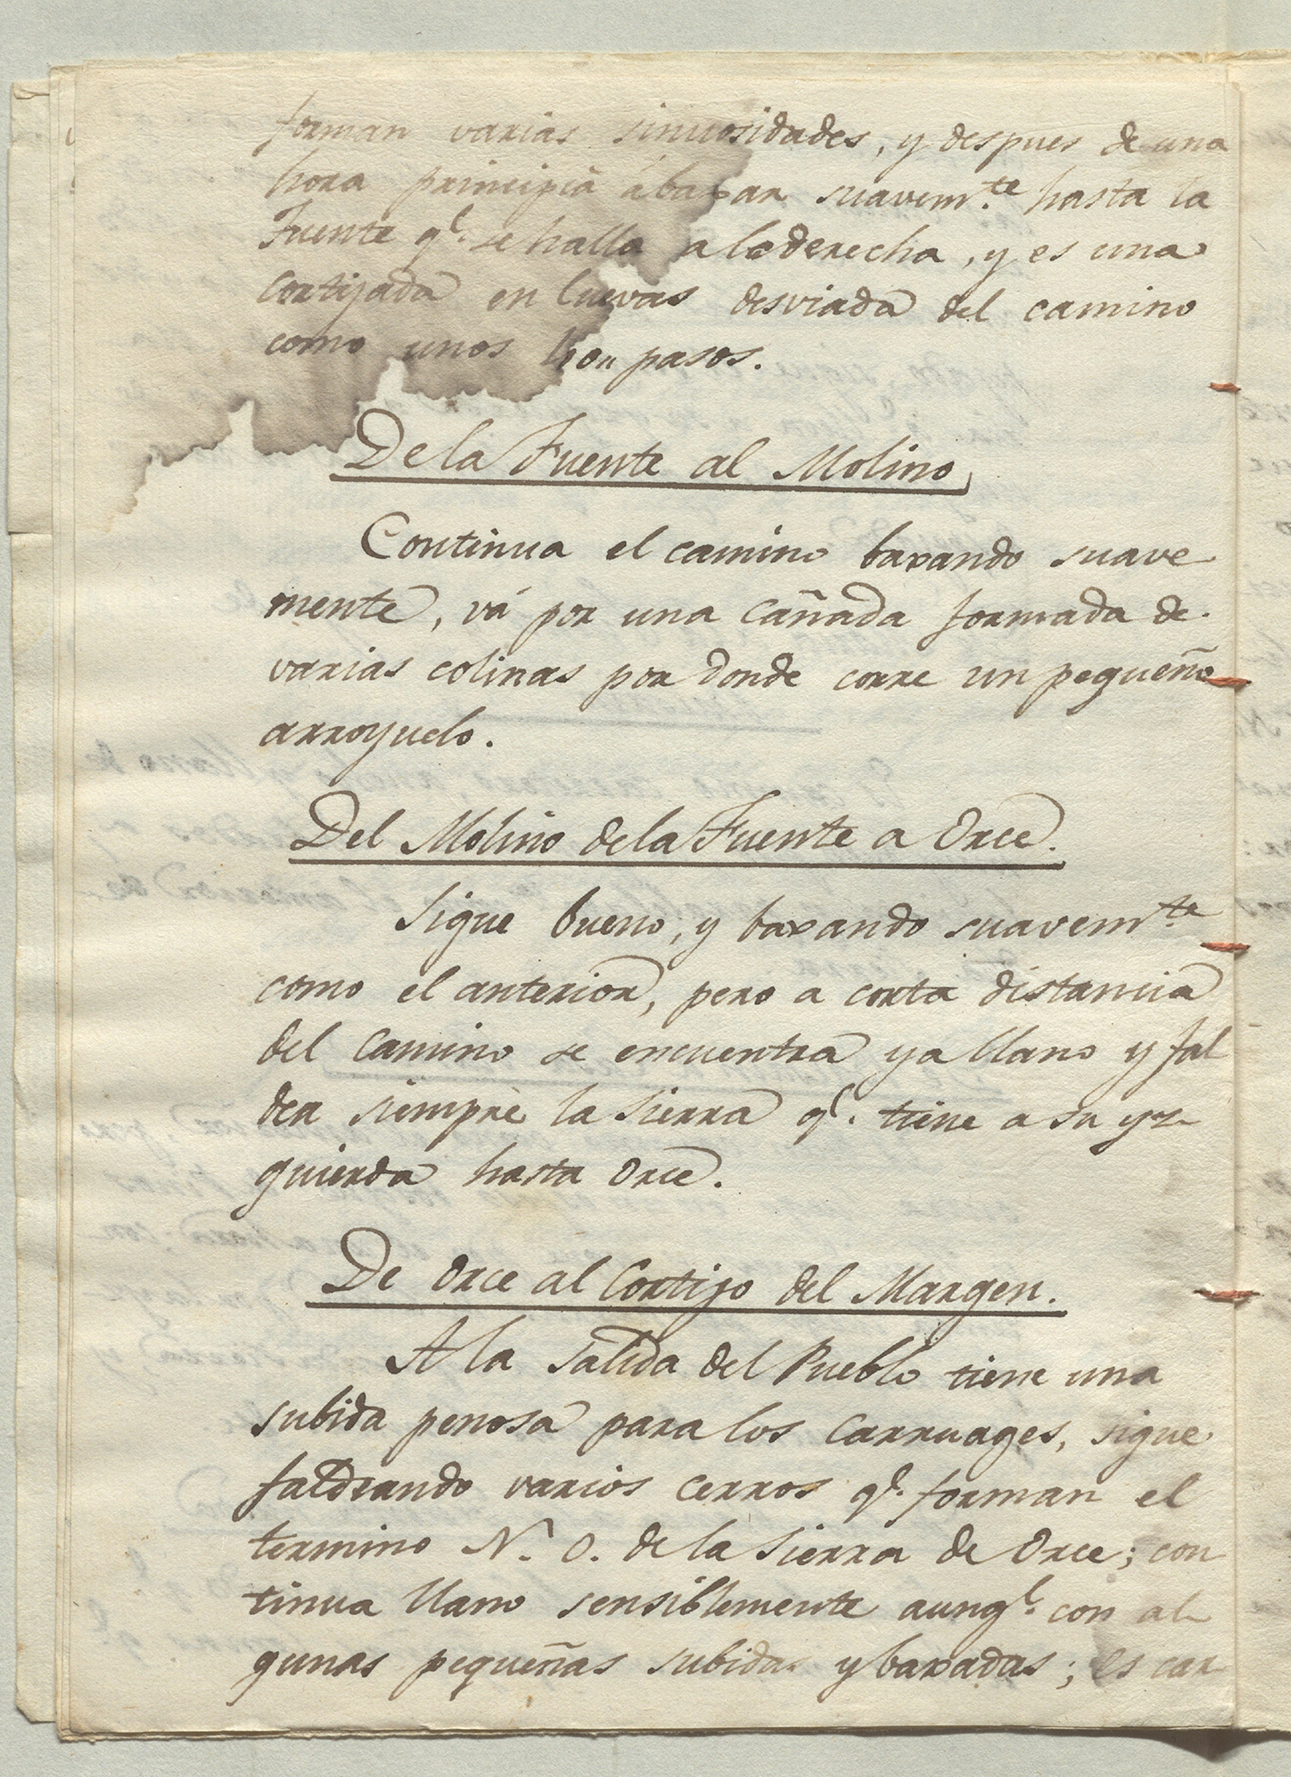 forman varias sinuosidades, y despues de una
hora principia á baxar suavem.te hasta la
Fuente q.e se halla a la derecha, y es una
cortijada en Cuevas desviada del camino
como unos pasos.
De la Fuente al Molino
Continua el camino baxando suave
mente, vá por una Cañada formada de
varias colinas por donde corre un pequeño
arroyuelo.
Del Molino de la Fuente a Orce.
Sigue bueno, y baxando suavem.te
como el anterior, pero a corta distancia
del Camino se encuentra ya llano y fal
dea siempre la Sierra q.e tiene a su yz
quierda hasta Orce.
De Orce al Cortijo del Margen.
A la salida del Pueblo tiene una
subida penosa para los Carruages, sigue
faldeando varios cerros q.e forman el
termino N. O. de la Sierra de Orce; con
tinua llano sensiblemente aunq.e con al
gunas pequeñas subidas y baxadas; es car